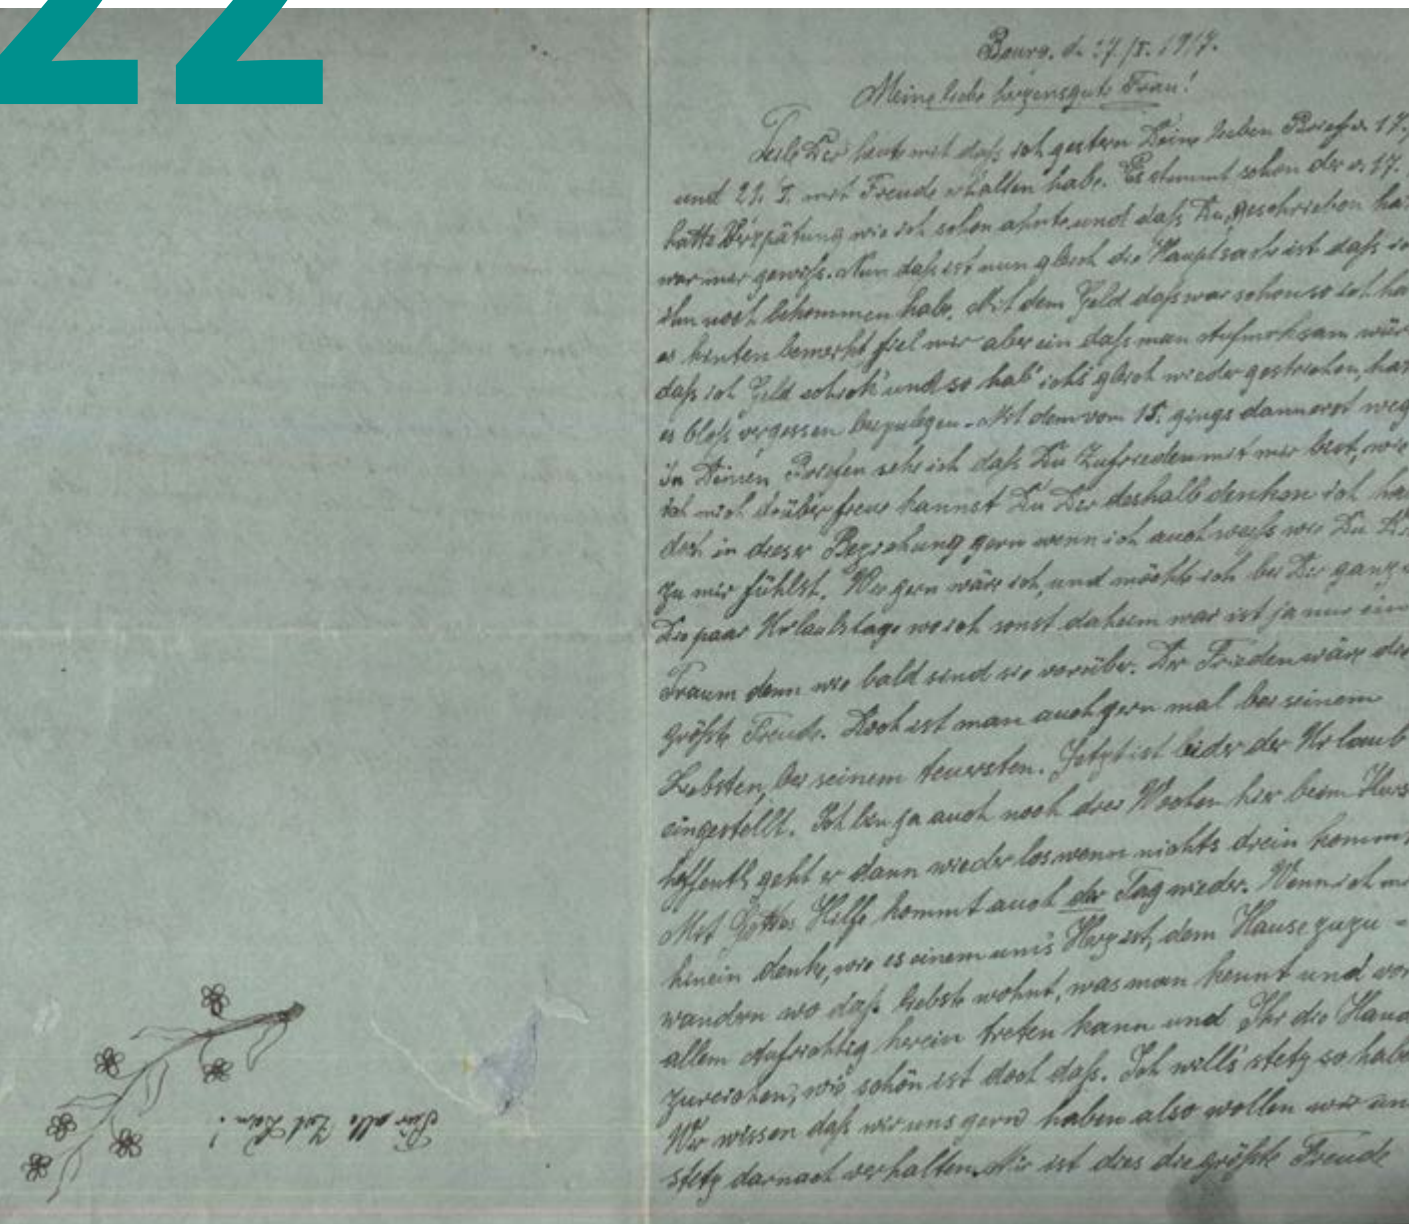 22
Bourg. d. 27./I. 1917.
Meine liebe herzensgute Frau!
Teile Dir heute mit daß ich gestern Deine lieben Briefe v. 17.
und 21. I. mit Freude erhalten habe. Es stimmt schon der v. 17.
hatte Verspätung wie ich schon ahnte und daß Du geschrieben ha
war mir gewiß. Nun daß ist nun gleich die Hauptsache ist daß ic
ihn noch bekommen habe. Mit dem Geld daß war schon so ich ha
es hinten bemerkt fiel mir aber ein daß man aufmerksam wür
daß ich Geld schick' und so hab' ich's gleich wieder gestrichen, hat
es bloß vergessen beizulegen. Mit dem vom 15. gings dann erst weg
in Deinen Briefen sehe ich daß Du Zufrieden mit mir bist, wie
ich mich drüber freue kannst Du Dir deshalb denken ich ha
doch in dieser Beziehung gern wenn ich auch weiß wie Du Di
zu mir fühlst. Wie gern wäre ich, und möchte ich bei Dir ganz
Die paar Urlaubstage wo ich sonst daheim war ist ja nur ein
Traum denn wie bald sind sie vorüber. Der Frieden wäre die
größte Freude. Doch ist man auch gern mal bei seinem
Liebsten, bei seinem teuersten. Jetzt ist leider der Urlaub
eingestellt. Ich bin ja auch noch drei Wochen hier beim Kurs
hoffentl. geht er dann wieder los wenn nichts drein kommt
Mit Gottes Hilfe kommt auch der Tag wieder. Wenn ich mi
hinein denke, wie es einem um's Herz ist, dem Hause zuzu-
wandern wo daß liebste wohnt, was man kennt und vor
allem Aufrichtig herein treten kann und Ihr die Hand
zureichen, wie schön ist doch daß. Ich will's stetz so habe
Wir wissen daß wir uns gern haben also wollen wir un
stetz darnach verhalten. Mir ist dies die größte Freude
Für alle Zeit Dein!